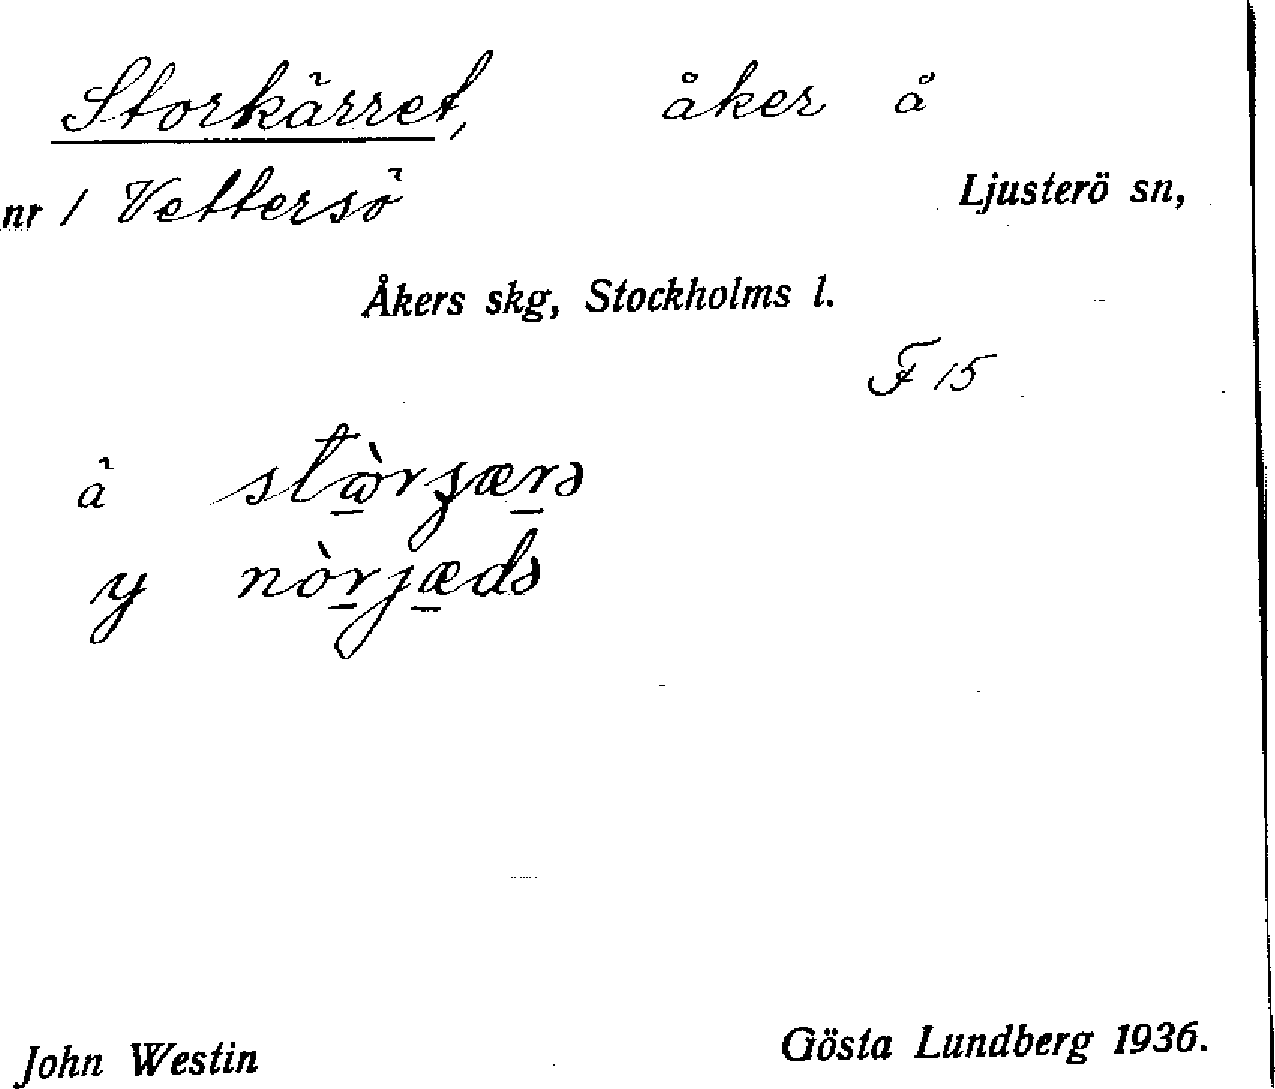 Storkärret, åker å
nr 1 Vettersö Ljusterö sn,
Åkers skg, Stockholms l.
F 15
ä
y
John Westin Gösta Lundberg 1936.